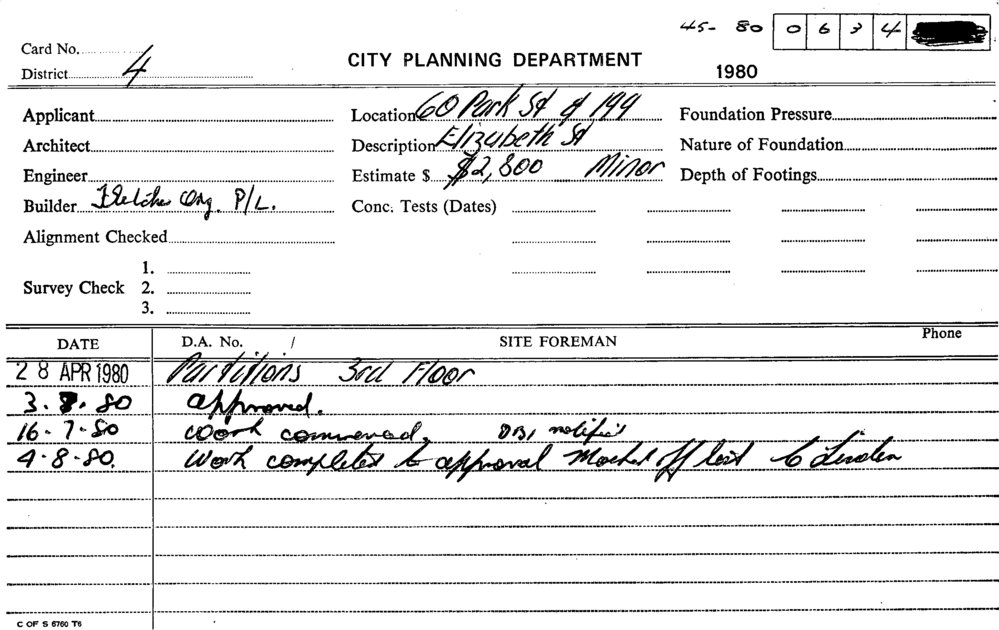 45- 80 0 6 3 4
Card No.
District 4
CITY PLANNING DEPARTMENT
1980
Applicant
Location 60 Park St & 199
Foundation Pressure
Architect
Description Elizabeth St
Nature of Foundation
Engineer
Estimate $ $2,800 Minor
Depth of Footings
Builder Fletcher Org. P/L.
Conc. Tests (Dates)
Alignment Checked
Survey Check 1.
2.
3.
DATE D.A. No. / SITE FOREMAN Phone
28 APR 1980 Partitions 3rd Floor
3. . 80 approved.
16-7-80 Work commenced.
4-8-80. Work completed to approval off
C OF S 6760 T6